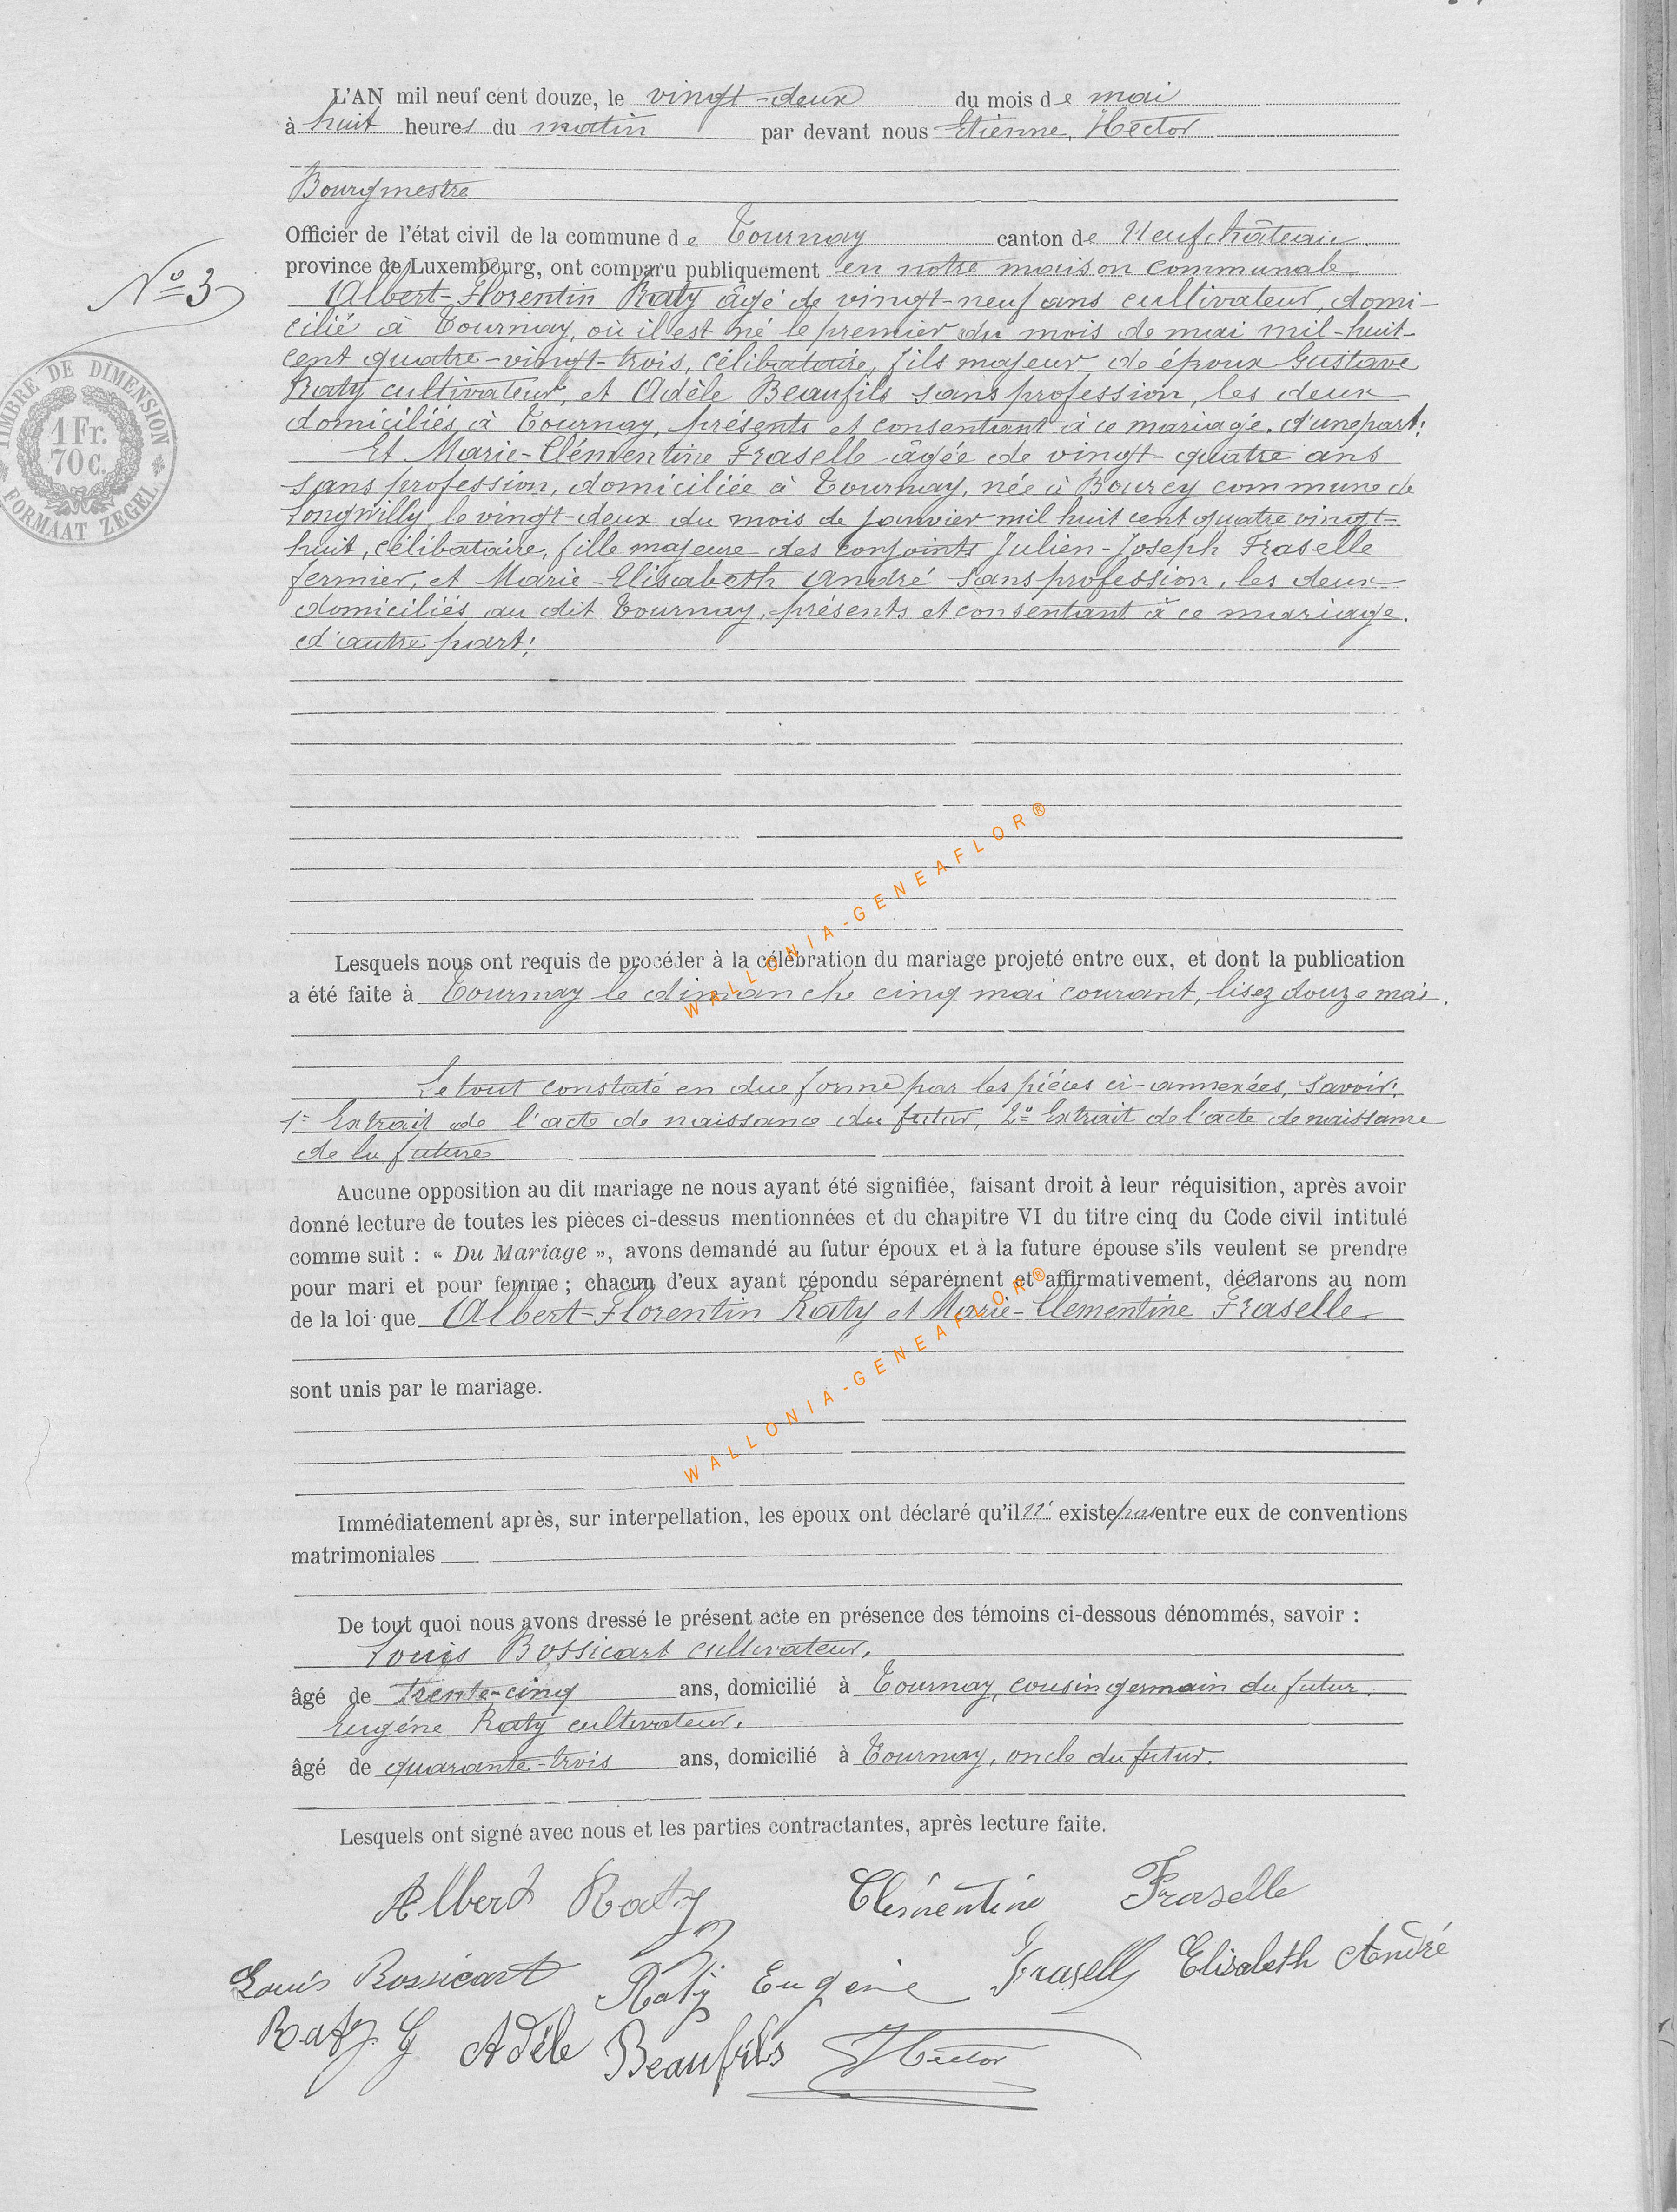 L'AN mil neuf cent douze, le vingt-deux du mois de mai
à huit heures du matin par devant nous Etienne, Hector
Bourgmestre
Officier de l'état civil de la commune de Tournay canton de Neufchâteau.
province de Luxembourg, ont comparu publiquement en notre maison communale.
No 3
Albert-Florentin Raty âgé de vingt-neuf ans cultivateur, domi-
cilié à Tournay, où il est né le premier du mois de mai mil-huit-
cent quatre-vingt-trois, célibataire, fils majeur de époux Gustave
Raty cultivateur, et Adèle Beaufils sans profession, les deux
domiciliés à Tournay, présents et consentant à ce mariage. d'une part;
Et Marie-Clémentine Fraselle âgée de vingt-quatre ans
sans profession, domiciliée à Tournay, née à Bourcy commune de
Longwilly, le vingt-deux du mois de janvier mil huit cent quatre vingt-
huit, célibataire, fille majeure des conjoints Julien-Joseph Fraselle
fermier, et Marie-Elisabeth André sans profession, les deux
domiciliés au dit Tournay, présents et consentant à ce mariage.
d'autre part;
TIMBRE DE DIMENSION
1 Fr.
70 c.
FORMAAT ZEGEL
Lesquels nous ont requis de procéder à la célébration du mariage projeté entre eux, et dont la publication
a été faite à Tournay le dimanche cinq mai courant, lisez douze mai.
Le tout constaté en due forme par les pièces ci-annexées, savoir:
1° Extrait de l'acte de naissance du futur, 2° Extrait de l'acte de naissance
de la future
Aucune opposition au dit mariage ne nous ayant été signifiée, faisant droit à leur réquisition, après avoir
donné lecture de toutes les pièces ci-dessus mentionnées et du chapitre VI du titre cinq du Code civil intitulé
comme suit : « Du Mariage », avons demandé au futur époux et à la future épouse s'ils veulent se prendre
pour mari et pour femme ; chacun d'eux ayant répondu séparément et affirmativement, déclarons au nom
de la loi que Albert-Florentin Raty et Marie-Clementine Fraselle.
sont unis par le mariage.
WALLONIA-GENEAFLOR®
WALLONIA-GENEAFLOR®
Immédiatement après, sur interpellation, les époux ont déclaré qu'il n' existe pas entre eux de conventions
matrimoniales
De tout quoi nous avons dressé le présent acte en présence des témoins ci-dessous dénommés, savoir :
Louis Bossicart cultivateur,
âgé de trente-cinq ans, domicilié à Tournay, cousin germain du futur.
Eugéne Raty cultivateur.
âgé de quarante-trois ans, domicilié à Tournay, oncle du futur.
Lesquels ont signé avec nous et les parties contractantes, après lecture faite.
Albert Raty Clémentine Fraselle
Louis Bossicart Raty Eugène Fraselle Elisabeth André
Raty G Adèle Beaufils Hector